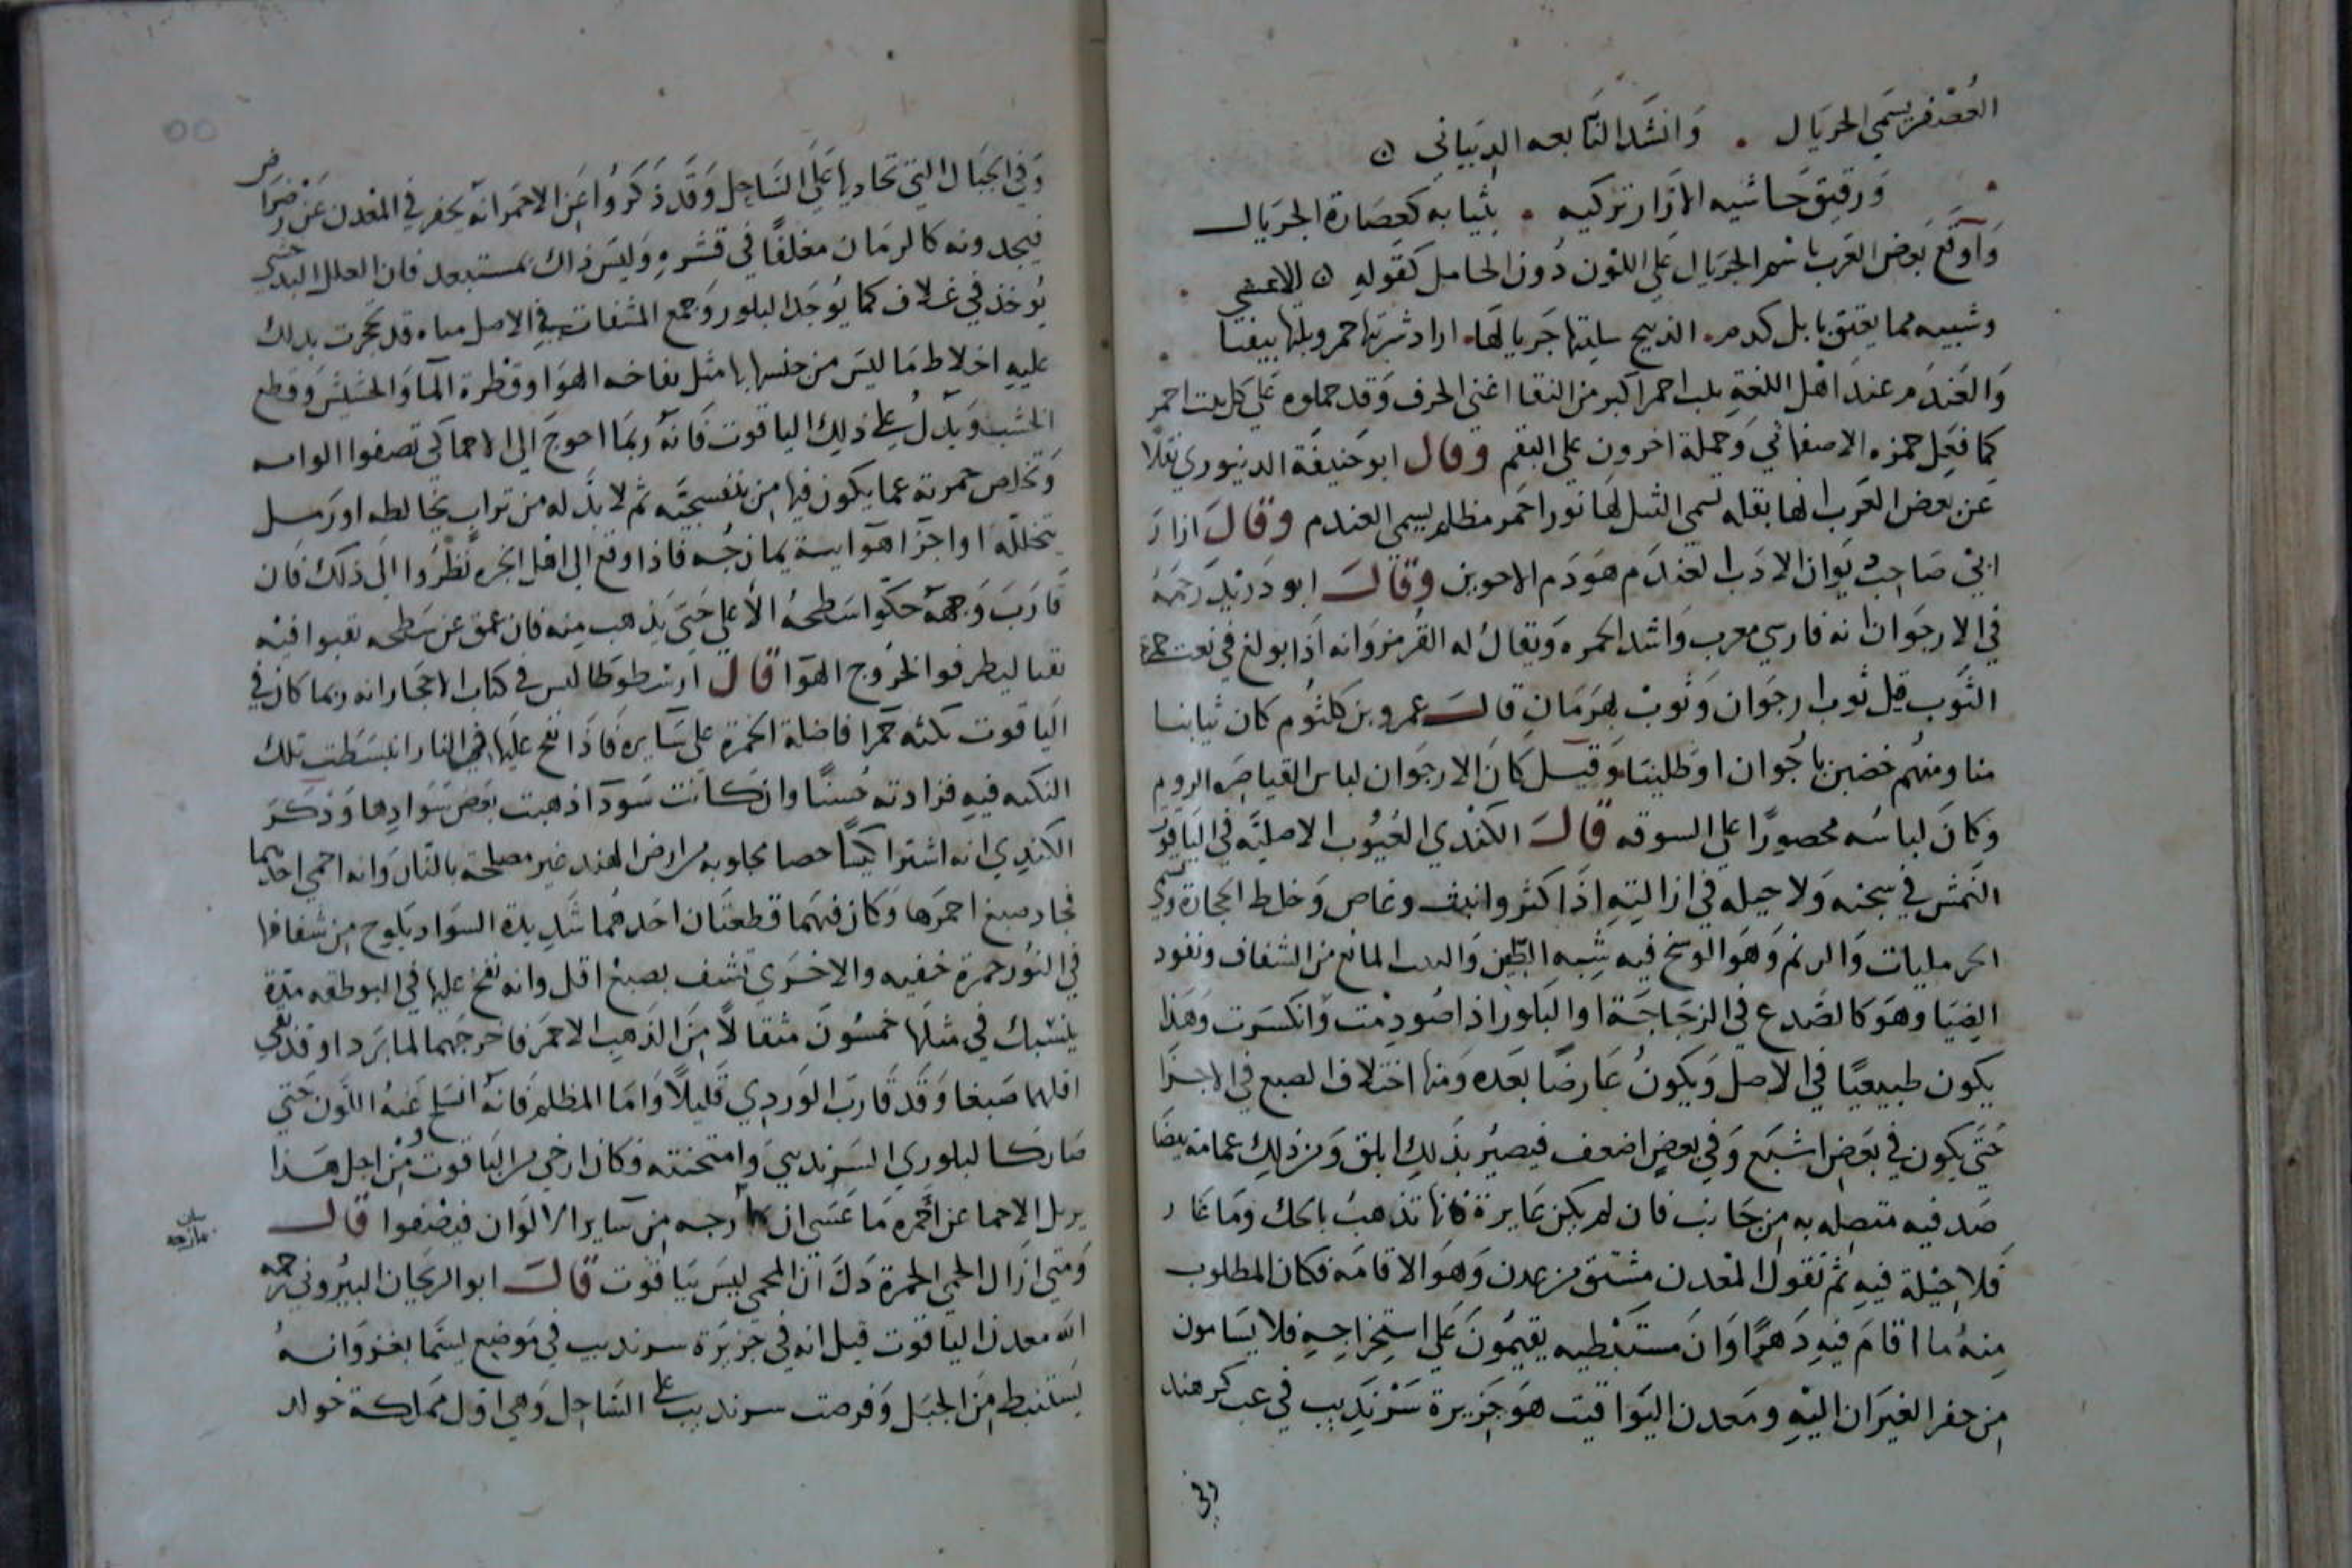 العصفر يسمي الجريال . وانشد النابعه الدبياني ن
ورقيق حاشيه الازار تزكيه . بثيابه كعصارة الجريال
واوقع بعض العرب باسم الجريال علي اللون دون الحامل كقوله ن الاعشي
وشبيه مما يعتق بابل كدم . الذبيح سلبتها جريالها . اراد شربتها حمر وبلتها بيضا
والعندم عند اهل اللغة احمر اكبر من النقا اغني الحرف وقد حملوه علي كل احمر
كما فعل حمزه الاصفهاني وحملة اخرون علي البقم وقال ابو حنيفة الدينوري نقلا
عن بعض العرب لها بقله تسمي لها نور احمر مظلم يسمي العندم وقال
ابي صاحب ديوان الادب العندم هو دم الاخوين وقال ابو دريد رحمه
في الارجوان انه فارسي معرب واشد الحمره ويقال له القرمز وانه اذا بولغ في نعت حمرة
الثوب قيل ثوب ارجوان وثوب بهرمان قال عمرو بن كلثوم كان ثيابنا
منا ومنهم خضبن باجوان او طلينا وقيل كان الارجوان لباس القياصره الروم
وكان لباسه محصورا علي السوقه قال الكندي العيوب الاصلية في الياقوت
النمش في سجنه ولا حيله في ازالته اذا اكثر وانبث وغاص وخلط الحجارة
الحرمليات والرثم وهو الوسخ فيه شبه الطين المانع من الشفاف ونفود
الضيا وهو كالصدع في الزجاجة او البلور اذا صودمت وانكسرت وهذا
يكون طبيعيا في الاصل ويكون عارضا بعده ومنها اختلاف الصبع في الاجزا
حتي يكون في بعض اشبع وفي بعض اضعف فيصير بذلك ابلق ومن ذلك عمامه بيضا
صدفيه متصله به من جانب فان لم يكن غايرة فانها تذهب بالحك وما غار
فلا حيلة فيه ثم نقول المعدن مشتق من عدن وهو الاقامه فكان المطلوب
منه ما اقام فيه دهرا وان مستنبطيه يقيمون علي استخراجه فلا يسامون
من حفر الغيران اليه ومعدن اليواقيت هو جزيرة سرنديب في عب كر هند
وفي
وفي الجبال التي تحاديها علي الساحل وقد ذكروا عن الاحمر انه يحفر في المعدن عن رضراض
فيجدونه كالرمان مغلفا في قشره وليس ذاك بمستبعد فان العلل البدخشي
يوخذ في غلاف كما يوجد البلور وجمع المشفات في الاصل مياه قد تحجرت بدلك
عليه اخلاط ما ليس من جنسها بها مثل نفاخه الهوا وقطرة الما والحشيش وقطع
الخشب ويدل علي ذلك الياقوت فانه ربما احوج الي الاحما كي تصفوا الوانه
وتخلص حمرته عما يكون فيها من بنفسجيه ثم لا بد له من تراب يخالطه او رمل
يتخلله او اجزا هوايية يمازجه فاذا وقع الي اهل الخبره نظروا الي ذلك فان
قارب وجهه حكوا سطحه الاعلي حتي يذهب منه فان عمق عن سطحه نقبوا فيه
نقبا ليطرفوا لخروج الهوا قال ارسطوطاليس في كتاب الاحجار انه ربما كان في
الياقوت نكته حمرا فاضلة الحمرة علي سايره فاذا نفخ عليها في النار انبسطت تلك
النكته فيه فزادته حسنا وان كانت سودا اذهبت بعض سوادها وذكر
الكندي انه اشترا كيسا حصا مجلوبه من ارض الهند غير مصلحة بالنار وانه احمي احدهما
فجاد صبغ احمرها وكان فيهما قطعتان احدهما شديدة السواد يلوح من شفافها
في النور حمرة خفيه والاخري تشف بصبغ اقل وانه نفخ عليها في البوطقه مدة
ينسبك في مثلها خمسون مثقالا من الذهب الاحمر فاخرجهما لما بردا وقد نقي
اقلهما صبغا وقد قارب الوردي قليلا واما المظلم فانه انسلخ عنه اللون حتي
صار كالبلوري السرنديبي وامتحنته فكان ارخي من الياقوت ومن اجل هذا
يزيل الاحما عن احمره ما عسي ان مازجه من ساير الالوان فيصفوا قال
ومتي ازال الحمي الحمرة دل ان المحمي ليس بياقوت قال ابو الريحان البيروني رحمه
الله معدن الياقوت قيل انه في جزيرة سرنديب في موضع يسما بغزوانه
يستنبط من الجبل وفرضت سرنديب علي الساحل وهي اول مملكة خوار
بيان
مازجه